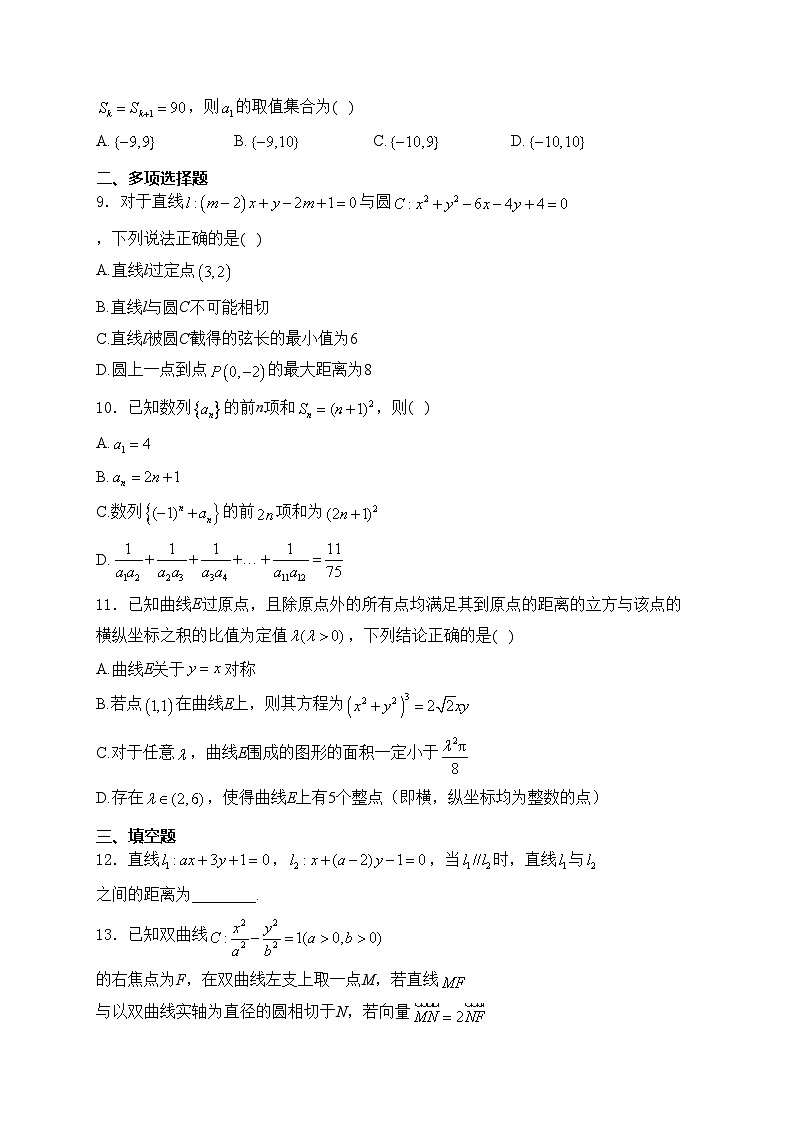 $S_k = S_{k+1} = 90$，则$a_1$的取值集合为( )
A.$\{-9,9\}$ B.$\{-9,10\}$ C.$\{-10,9\}$ D.$\{-10,10\}$
二、多项选择题
9．对于直线$l:(m-2)x+y-2m+1=0$与圆$C:x^2+y^2-6x-4y+4=0$
，下列说法正确的是( )
A.直线l过定点$(3,2)$
B.直线l与圆C不可能相切
C.直线l被圆C截得的弦长的最小值为6
D.圆上一点到点$P(0,-2)$的最大距离为8
10．已知数列$\{a_n\}$的前n项和$S_n=(n+1)^2$，则( )
A.$a_1=4$
B.$a_n=2n+1$
C.数列$\{(-1)^n+a_n\}$的前$2n$项和为$(2n+1)^2$
D.$\frac{1}{a_1a_2}+\frac{1}{a_2a_3}+\frac{1}{a_3a_4}+\ldots+\frac{1}{a_{11}a_{12}}=\frac{11}{75}$
11．已知曲线E过原点，且除原点外的所有点均满足其到原点的距离的立方与该点的
横纵坐标之积的比值为定值$\lambda(\lambda>0)$，下列结论正确的是( )
A.曲线E关于$y=x$对称
B.若点$(1,1)$在曲线E上，则其方程为$(x^2+y^2)^3=2\sqrt{2}xy$
C.对于任意$\lambda$，曲线E围成的图形的面积一定小于$\frac{\lambda^2\pi}{8}$
D.存在$\lambda\in(2,6)$，使得曲线E上有5个整点（即横，纵坐标均为整数的点）
三、填空题
12．直线$l_1:ax+3y+1=0$，$l_2:x+(a-2)y-1=0$，当$l_1//l_2$时，直线$l_1$与$l_2$
之间的距离为________.
13．已知双曲线$C:\frac{x^2}{a^2}-\frac{y^2}{b^2}=1(a>0,b>0)$
的右焦点为F，在双曲线左支上取一点M，若直线$MF$
与以双曲线实轴为直径的圆相切于N，若向量$\overrightarrow{MN}=2\overrightarrow{NF}$